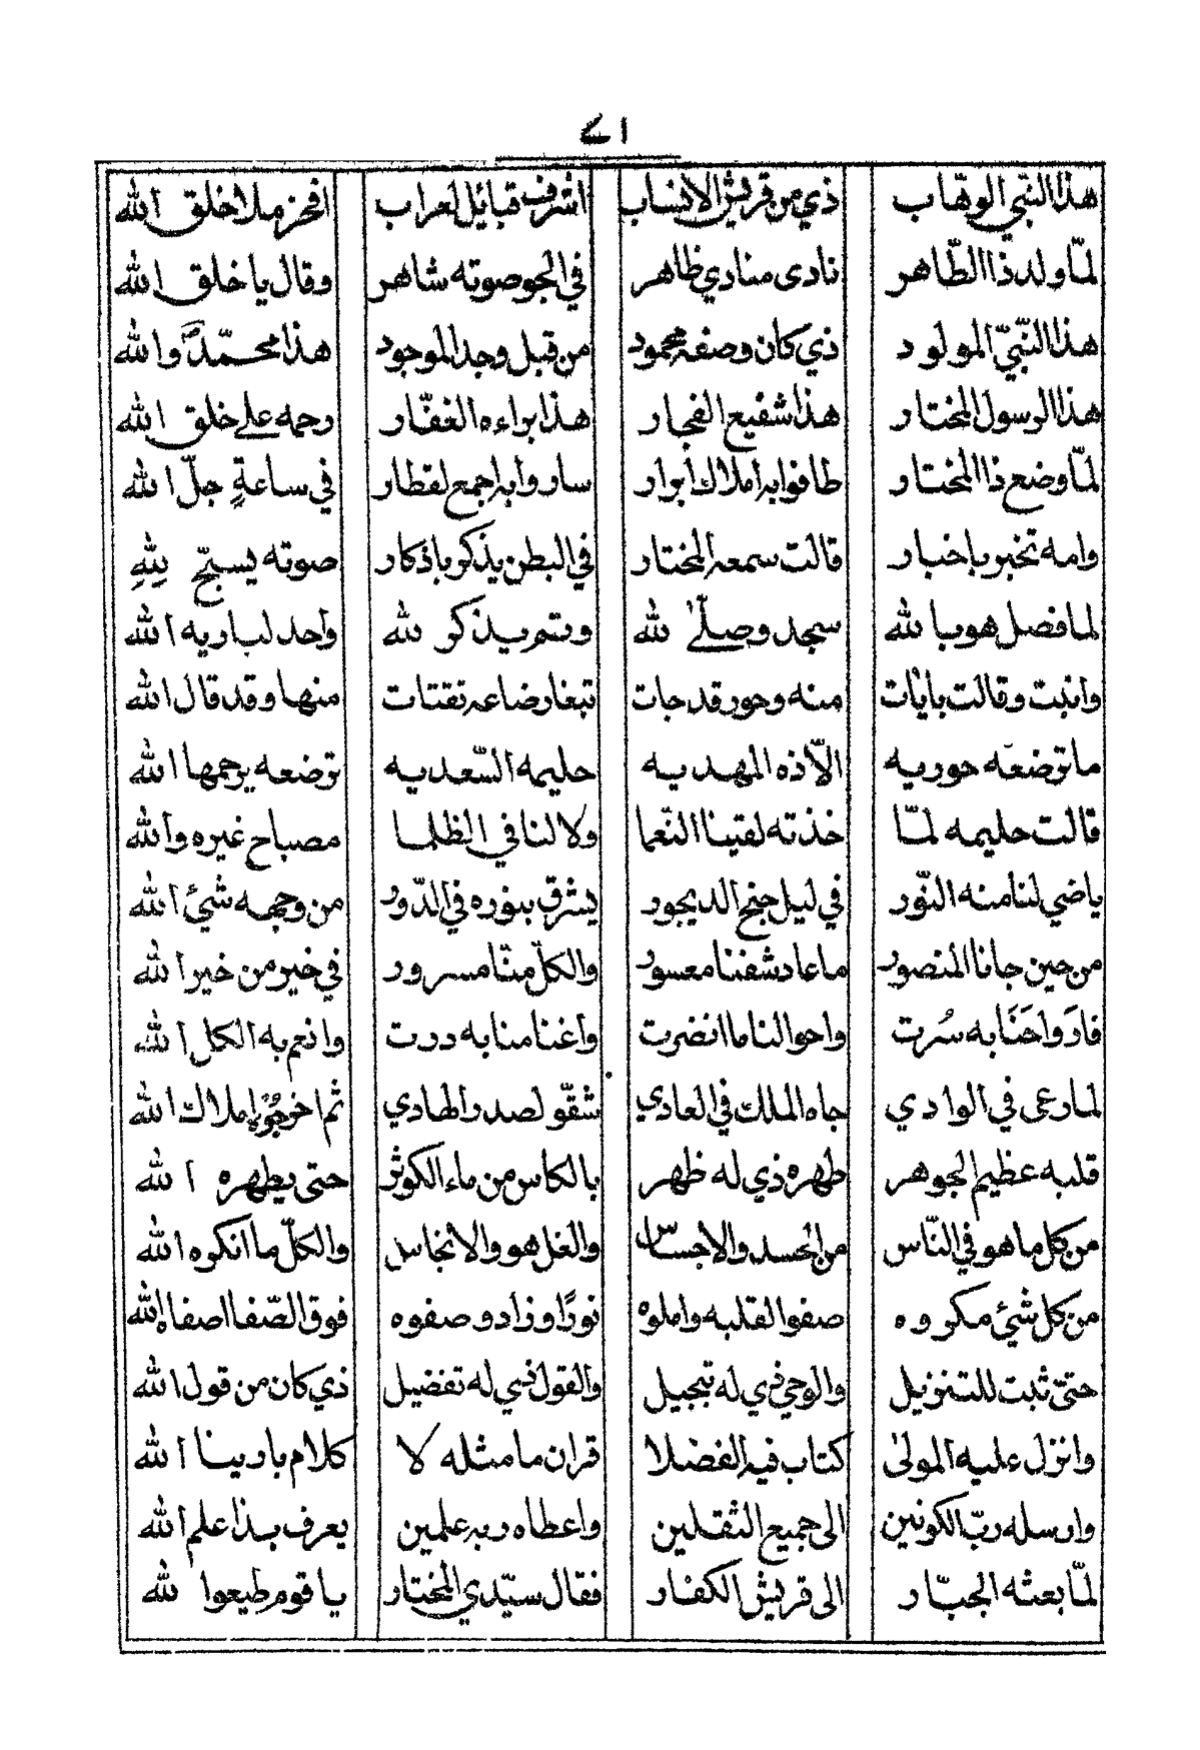 ٧١
هذا النّبي الوهّاب ذي من قريش الانساب اشرف قبائل لعراب افخر ملا خلق الله
لمّا ولد ذا الطّاهر نادى منادي ظاهر في الجو صوته شاهر وقال يا خلق الله
هذا النّبيّ المولود ذي كان وصفه محمود من قبل وجد الموجود هذا محمّدٌ والله
هذا الرسول المختار هذا شفيع الفجار هذا براءه الغفّار رحمه على خلق الله
لمّا وضع ذا المختار طافوا به املاك ابرار ساروا به اجمع لقطار في ساعةٍ جلّ الله
وامه تخبر باخبار قالت سمعه المختار في البطن يذكر باذكار صوته يسبّح للهِ
لما فصل هو بالله سجد وصلّى لله وتم يذكر لله واحد لباريه الله
وانبت وقالت بايات منه وحور قد جات تبغا رضاعه تقتات منها وقد قال الله
ما ترضعه حوريه الاّ ذه المهديه حليمه السّعديه ترضعه يرحمها الله
قالت حليمه لمّا خذته لقينا النّعما ولا لنا في الظلما مصباح غيره والله
ياضي لنا منه النّور في ليل جنح الديجور يشرق بنوره في الدّور من وجهه شيئ الله
من حين جانا المنصور ما عاد شفنا معسور والكلّ منّا مسرور في خير من خير الله
فارواحَنَا به سُرت واحوالنا ما انضرت واغنامنا به درت وانعم به الكل الله
لما رعى في الوادي جاه الملك في العادي شقّو لصدر الهادي ثم اخرجُوْه املاك الله
قلبه عظيم الجوهر طهره ذي له ظهر بالكاس من ماء الكوثر حتى يطهره الله
من كل ما هو في النّاس من الحسد والاجساس والغل هو والانجاس والكلّ ما انكره الله
من كل شيئ مكروه صفوا لقلبه واملوه نورًا وزادو صفوه فوق الصّفا اصفاه الله
حتىّ ثبت للتنزيل والوحي ذي له تبجيل والقول ذي له تفضيل ذي كان من قول الله
وانزل عليه المولىٰ كتاب فيه الفضلا قران ما مثله لا كلام بارينا الله
وارسله ربّ الكونين الى جميع الثقلين واعطاه ربه علمين يعرف بذا علم الله
لمّا بعثه الجبّار الى قريش الكفار فقال سيّدي المختار يا قوم طيعوا لله